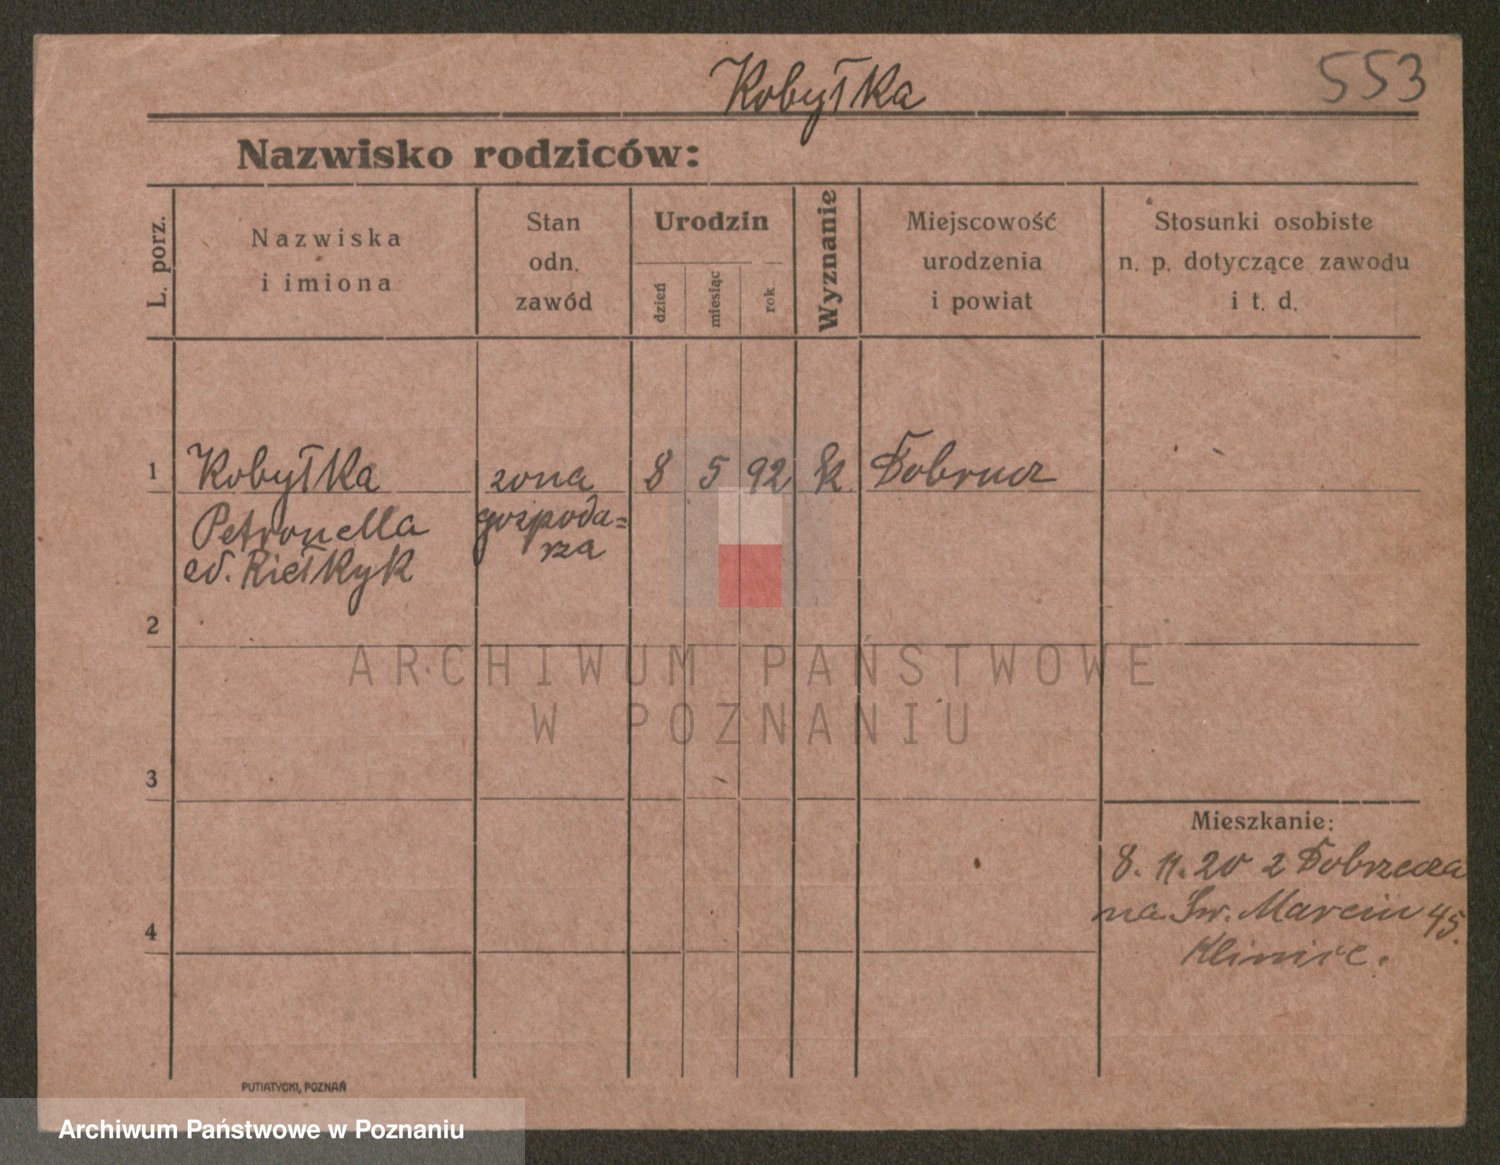 Kobyłka
553
Nazwisko rodziców:
L. porz.
Nazwiska
i imiona
Stan
odn.
zawód
Urodzin
dzień
miesiąc
rok
Wyznanie
Miejscowość
urodzenia
i powiat
Stosunki osobiste
n. p. dotyczące zawodu
i t. d.
1 Kobyłka żona 8 5 92 k
Petronella gospoda=
rza
2
3
4
Mieszkanie:
8. 11. 20 z
na Św. Marcin 45.
Klinik.
PUTIATYCKI, POZNAŃ
ARCHIWUM PAŃSTWOWE
W POZNANIU
Archiwum Państwowe w Poznaniu